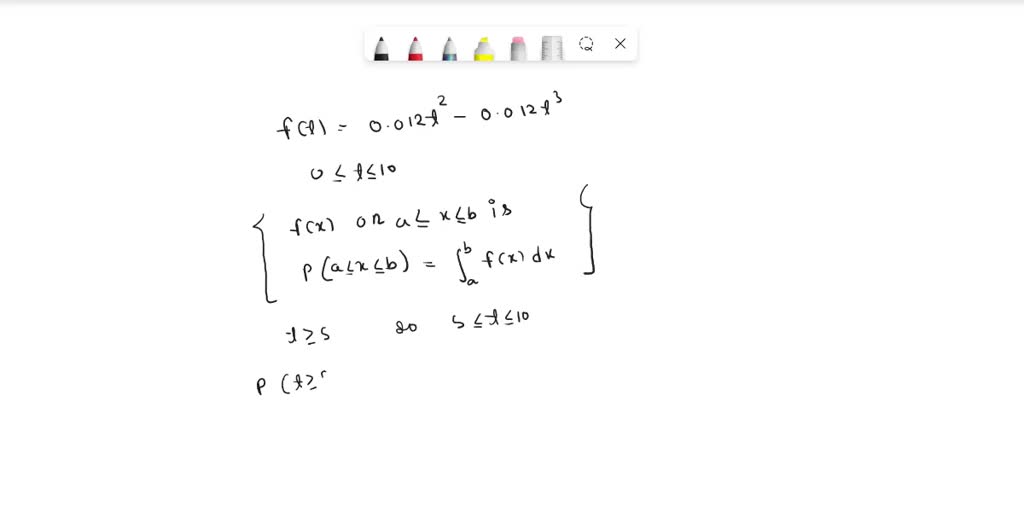 f(t) = 0.012t² - 0.012t³
0 ≤ t ≤ 10
{ f(x) on a ≤ x ≤ b is
P(a≤x≤b) = ∫ₐᵇ f(x) dx }
t ≥ 5 so 5 ≤ t ≤ 10
P (t≥